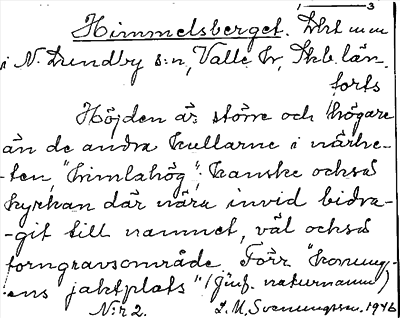 1 3
Himmelsberget.
i N. Lundby s:n, Valle hr, Skb. län.
forts
Höjden är större och högare
än de andra kullarne i närhe-
-ten, "himlahög"; kanske också
kyrkan där nära invid bidra-
-git till namnet, väl också
forngravsområde. Förr "konung-
ens jaktplats" (jämf. naturnamn)
N:r 2. L. M. Svenungsson. 1946